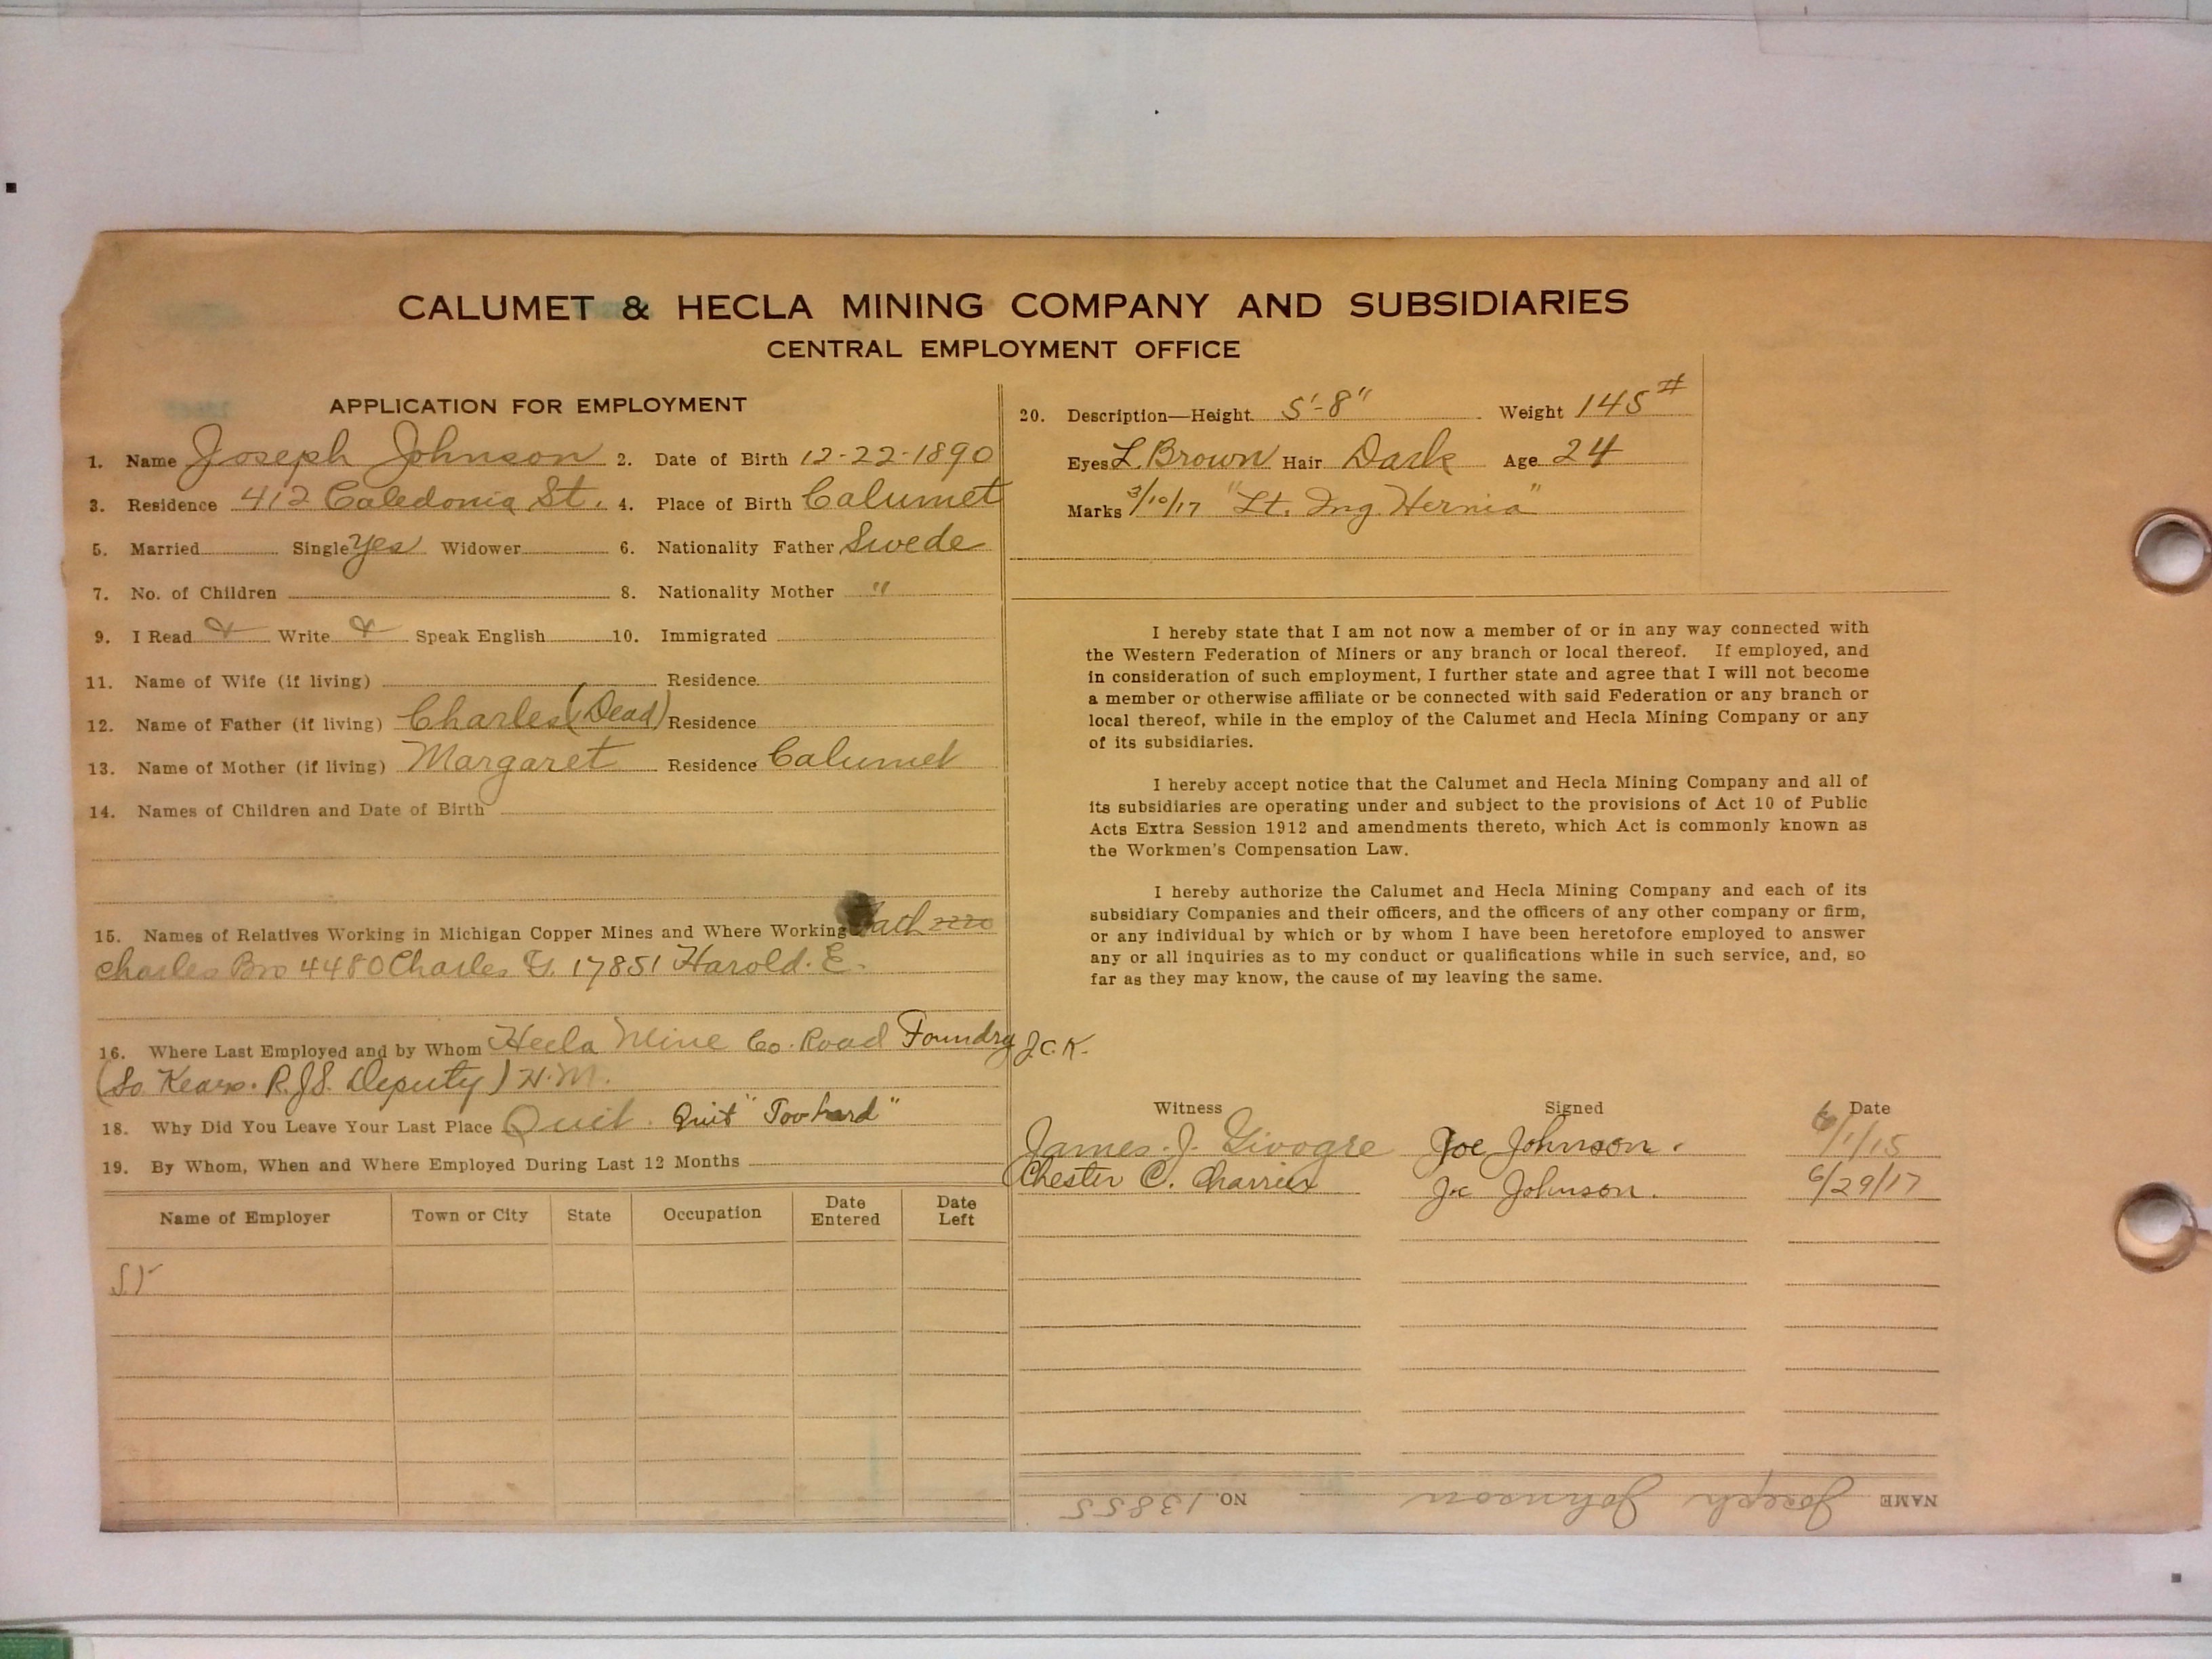 CALUMET & HECLA MINING COMPANY AND SUBSIDIARIES
CENTRAL EMPLOYMENT OFFICE
APPLICATION FOR EMPLOYMENT
1. Name Joseph Johnson 2. Date of Birth 12-22-1890
3. Residence 412 Caledonia St. 4. Place of Birth Calumet
5. Married Single Yes Widower 6. Nationality Father Swede
7. No. of Children 8. Nationality Mother "
9. I Read Write Speak English 10. Immigrated
11. Name of Wife (if living) Residence
12. Name of Father (if living) Charles (Dead) Residence
13. Name of Mother (if living) Margaret Residence Calumet
14. Names of Children and Date of Birth
15. Names of Relatives Working in Michigan Copper Mines and Where Working
Charles Bro 4480 Charles 17851 Harold. E.
16. Where Last Employed and by Whom Hecla Mine Co. Road Foundry J.C.K.
(So. Kears. R.J.S. Deputy) H.M.
18. Why Did You Leave Your Last Place Quit. Quit "Too hard"
19. By Whom, When and Where Employed During Last 12 Months
Name of Employer Town or City State Occupation Date Entered Date Left
20. Description—Height 5'-8" Weight 145#
Eyes L. Brown Hair Dark Age 24
Marks 3/10/17 "Lt. Ing. Hernia"
I hereby state that I am not now a member of or in any way connected with
the Western Federation of Miners or any branch or local thereof. If employed, and
in consideration of such employment, I further state and agree that I will not become
a member or otherwise affiliate or be connected with said Federation or any branch or
local thereof, while in the employ of the Calumet and Hecla Mining Company or any
of its subsidiaries.
I hereby accept notice that the Calumet and Hecla Mining Company and all of
its subsidiaries are operating under and subject to the provisions of Act 10 of Public
Acts Extra Session 1912 and amendments thereto, which Act is commonly known as
the Workmen's Compensation Law.
I hereby authorize the Calumet and Hecla Mining Company and each of its
subsidiary Companies and their officers, and the officers of any other company or firm,
or any individual by which or by whom I have been heretofore employed to answer
any or all inquiries as to my conduct or qualifications while in such service, and, so
far as they may know, the cause of my leaving the same.
Witness Signed Date
James. J. Joe Johnson. 6/1/15
Chester C. Joe Johnson. 6/29/17
NAME Joseph Johnson NO. 13855